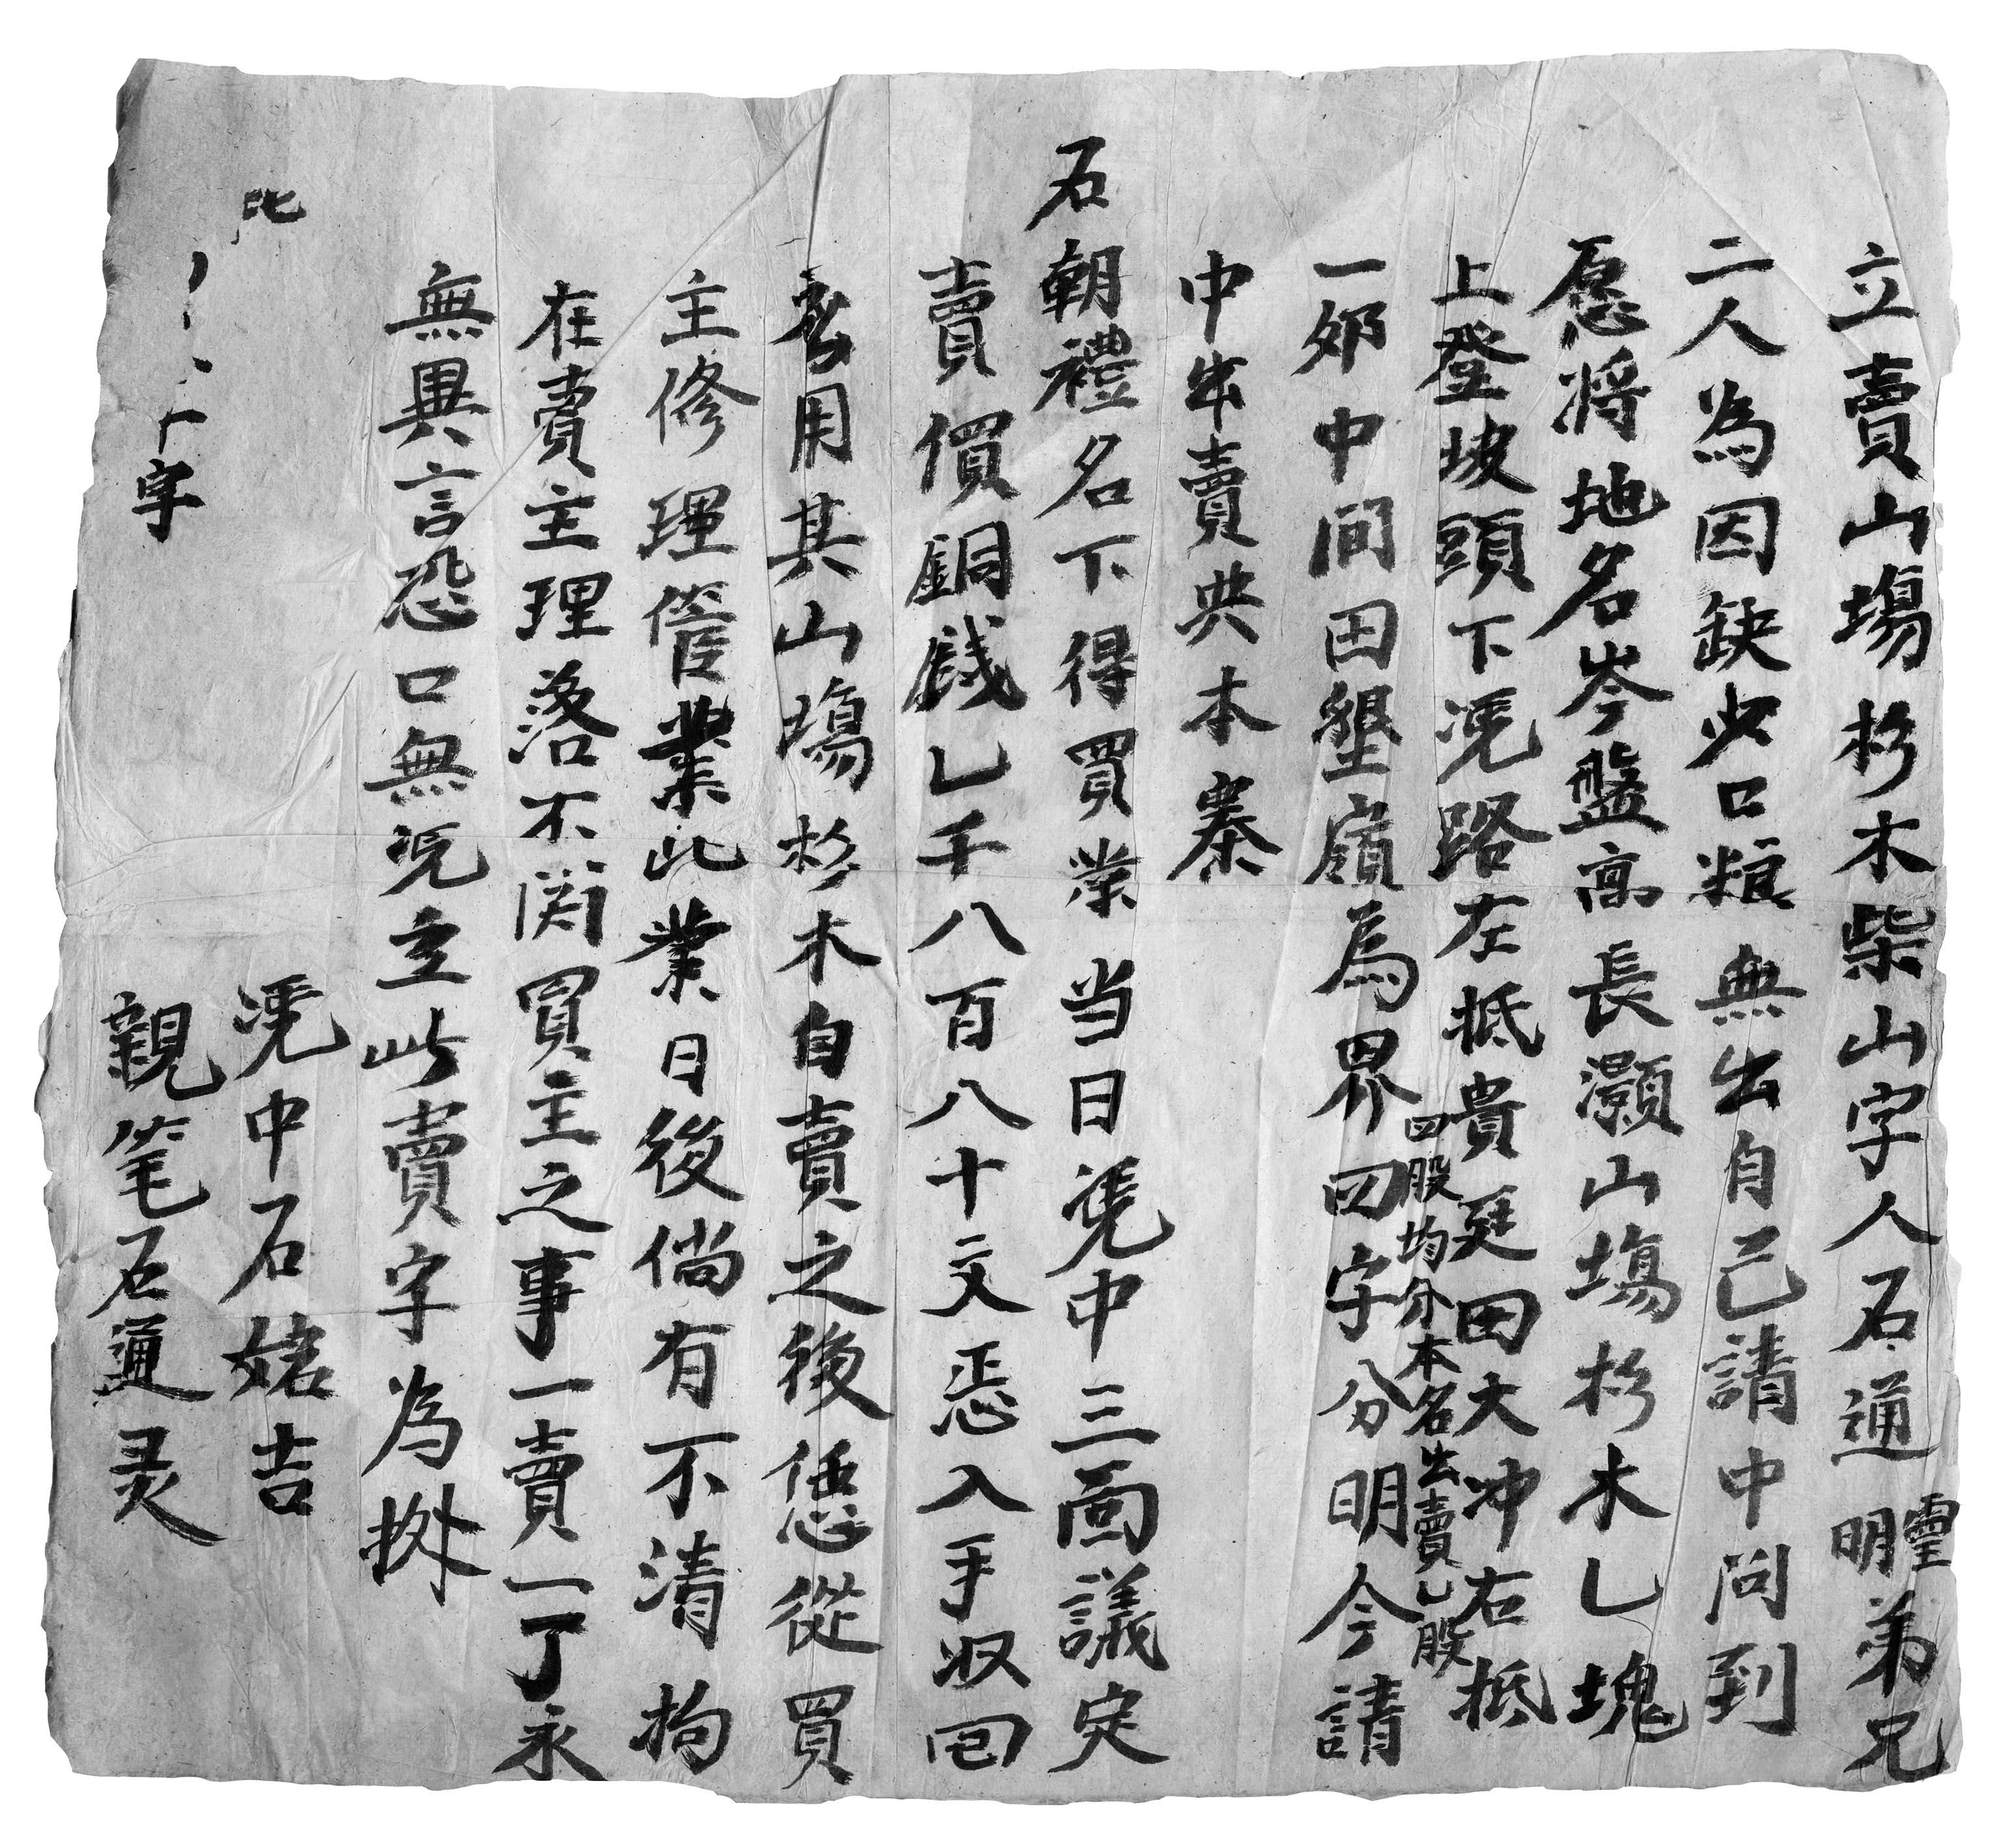 立賣山塲杉木柴山字人石通明靈弟兄
二人為因缺少口粮無出自己請中问到
愿将地名岑盤高長灝山塲杉木乚塊
上登坡頭下凴路左抵貴廷田大冲右抵
四股均分本名出賣乚股
一郊中间田墾嶺為界四字分明今請
中牟賣與本寨
石朝禮名下得買業当日凴中三面議定
賣價銅錢乚千八百八十文悉入手収回
應用其山塲杉木自賣之後恁從買
主修理管業此業日後倘有不清拘
在賣主理落不関買主之事一賣一了永
無異言恐口無凴立此賣字為㨿
凴中石㛗吉
字
親笔石通灵